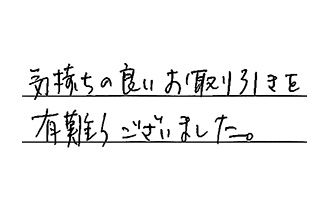 気持ちの良いお取り引きを
有難うございました。